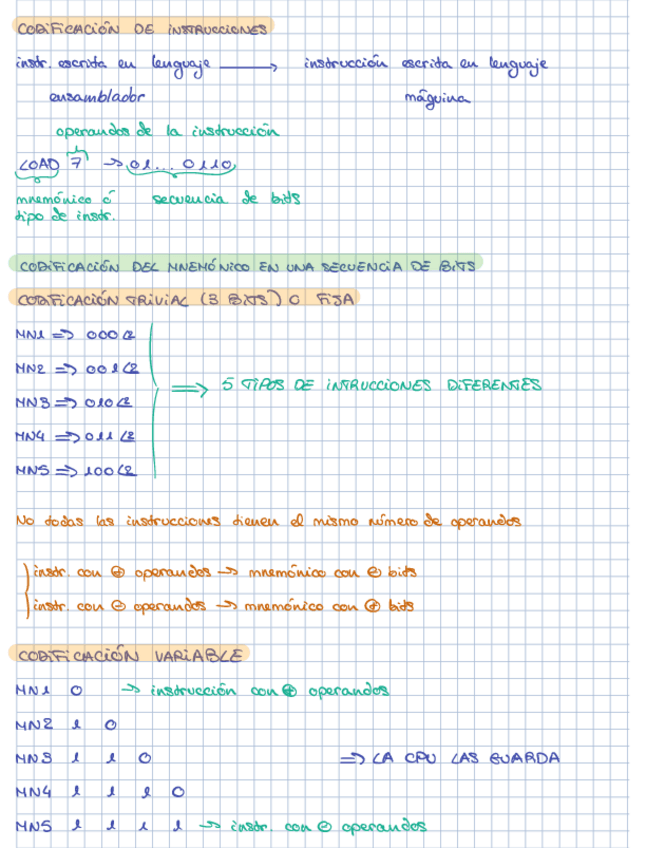 CODIFICACIÓN DE INSTRUCCIONES
instr. escrita en lenguaje → instrucción escrita en lenguaje
ensamblador máquina
operandos de la instrucción
LOAD 7 → 01... 0110
mnemónico ó secuencia de bits
tipo de instr.
CODIFICACIÓN DEL MNEMÓNICO EN UNA SECUENCIA DE BITS
CODIFICACIÓN TRIVIAL (3 BITS) O FIJA
MN1 => 000(2
MN2 => 001(2
MN3 => 010(2
=> 5 TIPOS DE INTRUCCIONES DIFERENTES
MN4 => 011(2
MN5 => 100(2
No todas las instrucciones tienen el mismo número de operandos
instr. con ⊕ operandos → mnemónico con ⊖ bits
instr. con ⊖ operandos → mnemónico con ⊕ bits
CODIFICACIÓN VARIABLE
MN1 0 → instrucción con ⊕ operandos
MN2 1 0
MN3 1 1 0 => LA CPU LAS GUARDA
MN4 1 1 1 0
MN5 1 1 1 1 → instr. con ⊖ operandos